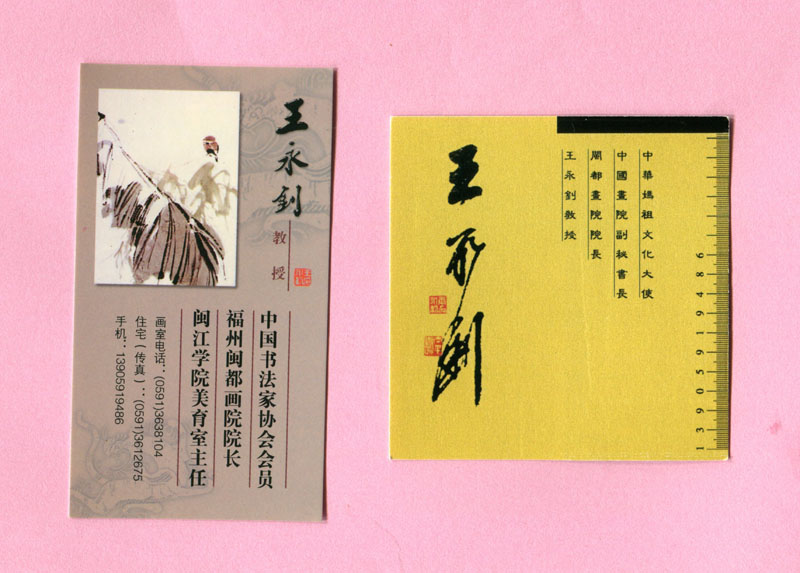 王永钊
教授
中国书法家协会会员
福州闽都画院院长
闽江学院美育室主任
画室电话：(0591)3638104
住宅（传真）：(0591)3612675
手机：13905919486
中華媽祖文化大使
中國畫院副秘書長
閩都畫院院長
王永釗教授
王永钊
13905919486